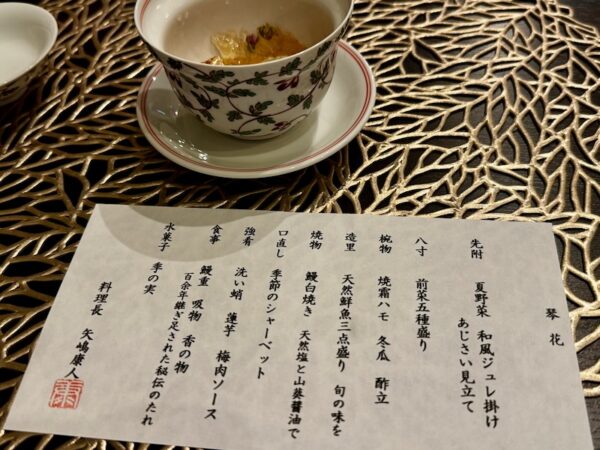 琴花
先附　夏野菜　和風ジュレ掛け
あじさい見立て
八寸　前菜五種盛り
椀物　焼霜ハモ　冬瓜　酢立
造里　天然鮮魚三点盛り　旬の味を
焼物　鰻白焼き　天然塩と山葵醤油で
口直し　季節のシャーベット
強肴　洗い蛸　蓮芋　梅肉ソース
食事　鰻重　吸物　香の物
百余年継ぎ足された秘伝のたれ
水菓子　季の実
料理長　矢嶋康人
康